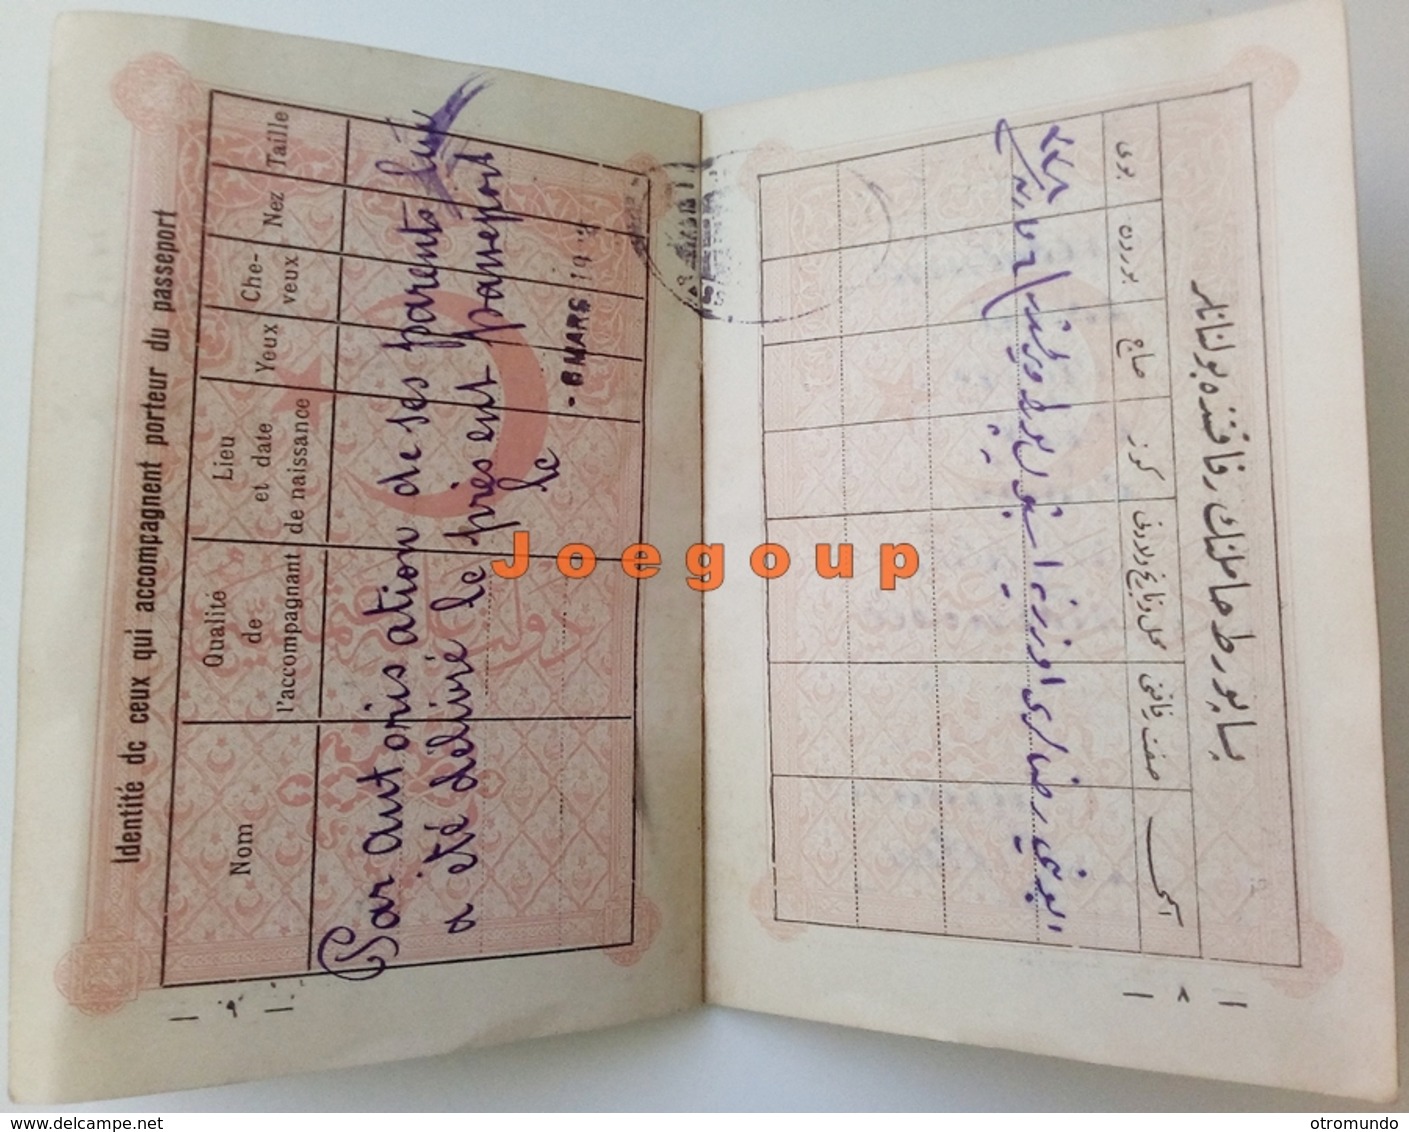 Identité de ceux qui accompagnent porteur du passeport
Nom
Qualité
de
l'accompagnant
Lieu
et date
de naissance
Yeux
Che-
veux
Nez
Taille
Par autorisation de ses parents lui
a été délivré le présent passeport
le - 8 MARS 19
— ٩ —
پساپورط حاملنك رفاقتنده بولنانلر
اسمى
صفت رفاقتى
محل و تاريخ ولادتى
گوز
صاچ
بورون
بوى
ابوينى رضالرى اوزرينه اشبو پاپورط ويرلمشدر
— ٨ —
Joegoup
www.delcampe.net
otromundo